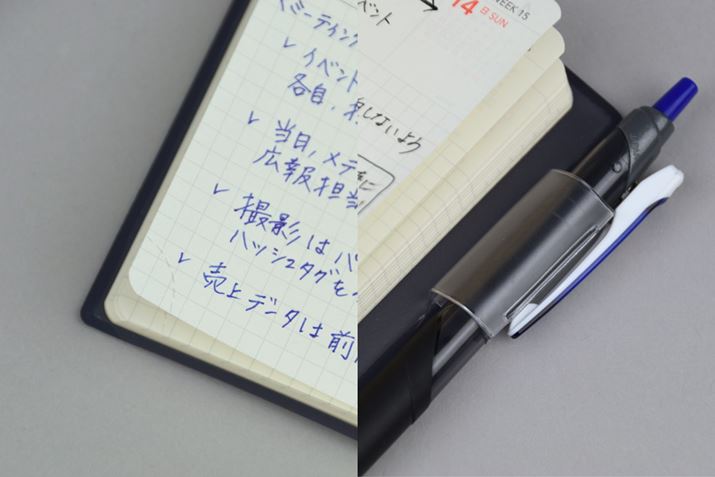 ミーティング
✓ イベント
各自、
✓ 当日、メデ
広報担当
✓ 撮影はハ
ハッシュタグを
✓ 売上データは前
ベント →
14 日 SUN
WEEK 15
しないよう
に